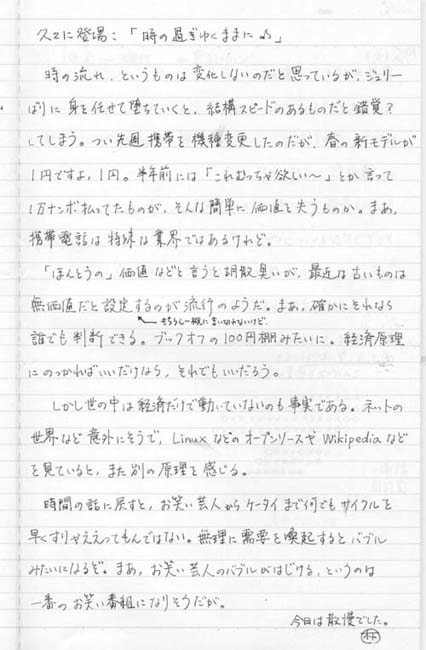 久々に登場:「時の過ぎゆくままに♪」
時の流れ、というものは変化しないのだと思っているが、ジュリー
ばりに身を任せて堕ちていくと、結構スピードのあるものだと錯覚?
してしまう。つい先週携帯を機種変更したのだが、春の新モデルが
1円ですよ、1円。半年前には「これむっちゃ欲しい〜」とか言って
1万ナンボ払ってたものが、そんな簡単に価値を失うものか。まあ、
携帯電話は特殊な業界ではあるけれど。
「ほんとうの」価値などと言うと胡散臭いが、最近は古いものは
無価値だと設定するのが流行のようだ。まあ、確かにそれなら
もちろん一概に言い切れないけど。
誰でも判断できる。ブックオフの100円棚みたいに。経済原理
にのっかればいいだけなら、それでもいいだろう。
しかし世の中は経済だけで動いていないのも事実である。ネットの
世界など意外にそうで、Linuxなどのオープンソースや Wikipediaなど
を見ていると、また別の原理を感じる。
時間の話に戻すと、お笑い芸人からケータイまで何でもサイクルを
早くすりゃええってもんではない。無理に需要を喚起するとバブル
みたいになるぞ。まあ、お笑い芸人のバブルがはじける、というのは
一番のお笑い番組になりそうだが。
今日は散慢でした。